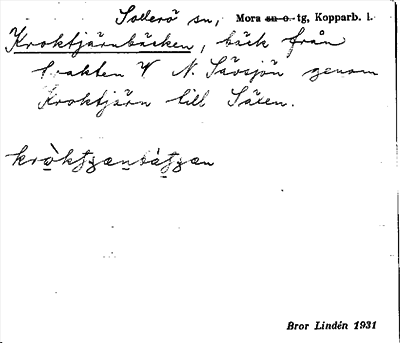 Solerö sn, Mora sn o. tg, Kopparb. l.
Kroktjärnbäcken, bäck från
trakten V N. Sävsjön genom
Kroktjärn till Säxen.
Bror Lindén 1931